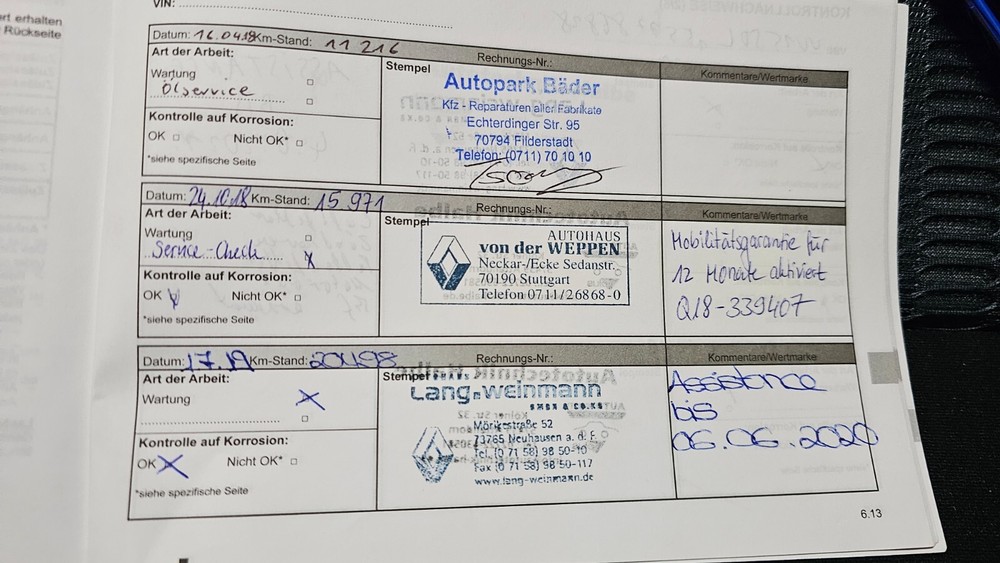 rt erhalten
Rückseite
VIN:
Datum: 16.04.18 Km-Stand: 11 216
Rechnungs-Nr.:
Kommentare/Wertmarke
Art der Arbeit:
Wartung
Ölservice
Kontrolle auf Korrosion:
OK Nicht OK*
*siehe spezifische Seite
Stempel
Autopark Bäder
Kfz - Reparaturen aller Fabrikate
Echterdinger Str. 95
70794 Filderstadt
Telefon: (0711) 70 10 10
Datum: 24.10.18 Km-Stand: 15 971
Rechnungs-Nr.:
Kommentare/Wertmarke
Art der Arbeit:
Wartung
Service-Check
Kontrolle auf Korrosion:
OK Nicht OK*
*siehe spezifische Seite
Stempel
AUTOHAUS
von der WEPPEN
Neckar-/Ecke Sedanstr.
70190 Stuttgart
Telefon 0711/26868-0
Mobilitätsgarantie für
12 Monate aktiviert
Q18-339407
Datum: 17.19 Km-Stand: 20498
Rechnungs-Nr.:
Kommentare/Wertmarke
Art der Arbeit:
Wartung
Kontrolle auf Korrosion:
OK Nicht OK*
*siehe spezifische Seite
Stempel
Lang-weinmann
GMBH & CO.KG
Mörikestraße 52
73765 Neuhausen a. d. F.
Tel. (0 71 58) 98 50-10
Fax (0 71 58) 98 50-117
www.lang-weinmann.de
Assistance
bis
06.06.2020
6.13